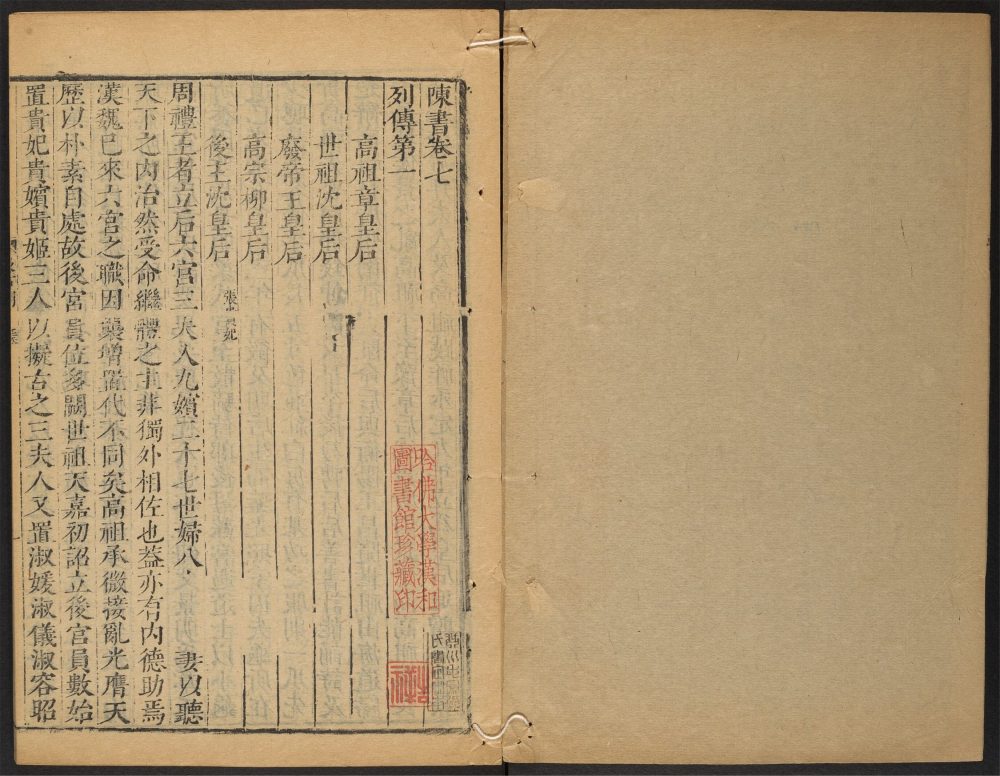 陳書卷七
列傳第一
高祖章皇后
世祖沈皇后
廢帝王皇后
高宗柳皇后
後主沈皇后 張貴妃
周禮王者立后六宫三夫人九嬪二十七世婦八 妻以聽
天下之内治然受命繼體之主非獨外相佐也葢亦有内德助焉
漢魏已來六宫之職因襲增置代不同矣高祖承微接亂光膺天
歷以朴素自處故後宫員位多闕世祖天嘉初詔立後宫員數始
置貴妃貴嬪貴姬三人以擬古之三夫人又置淑媛淑儀淑容昭
哈佛大學漢和
圖書館珍藏印